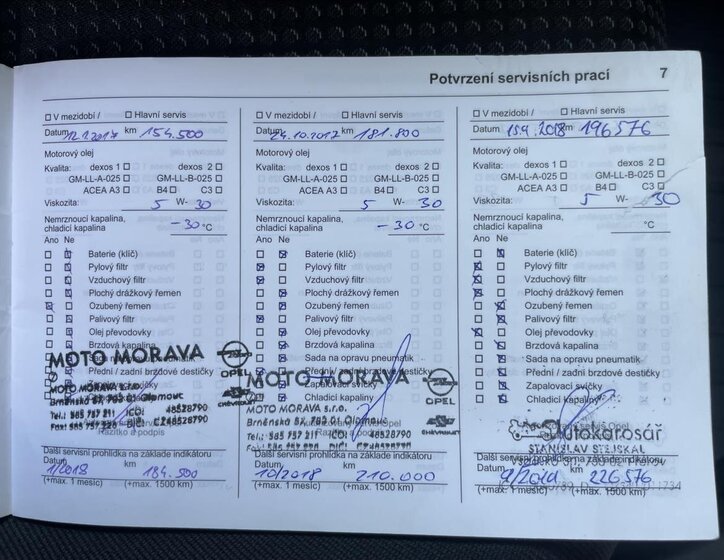 Potvrzení servisních prací 7
☐ V mezidobí / ☐ Hlavní servis
Datum 12.2.2017 km 154.500
Motorový olej
Kvalita: dexos 1 ☐ dexos 2 ☐
GM-LL-A-025 ☐ GM-LL-B-025 ☐
ACEA A3 ☐ B4 ☐ C3 ☐
Viskozita: 5 W- 30
Nemrznoucí kapalina,
chladicí kapalina -30 °C
Ano Ne
Baterie (klíč)
Pylový filtr
Vzduchový filtr
Plochý drážkový řemen
Ozubený řemen
Palivový filtr
Olej převodovky
Brzdová kapalina
Přední / zadní brzdové destičky
MOTO MORAVA
OPEL
CHEVROLET
MOTO MORAVA s.r.o.
Brněnská 57, 783 01 Olomouc
Tel.: 585 757 211 IČO: 48528790
Razítko a podpis
Další servisní prohlídka na základě indikátoru
Datum 1/2018 km 184.500
(+max. 1 měsíc) (+max. 1500 km)
☐ V mezidobí / ☐ Hlavní servis
Datum 24.10.2017 km 181.800
Motorový olej
Kvalita: dexos 1 ☐ dexos 2 ☐
GM-LL-A-025 ☐ GM-LL-B-025 ☐
ACEA A3 ☐ B4 ☐ C3 ☐
Viskozita: 5 W- 30
Nemrznoucí kapalina,
chladicí kapalina -30 °C
Ano Ne
Baterie (klíč)
Pylový filtr
Vzduchový filtr
Plochý drážkový řemen
Ozubený řemen
Palivový filtr
Olej převodovky
Brzdová kapalina
Sada na opravu pneumatik
Přední / zadní brzdové destičky
Zapalovací svíčky
Chladicí kapalina
MOTO MORAVA
OPEL
CHEVROLET
MOTO MORAVA s.r.o.
Brněnská 57, 783 01 Olomouc
Tel.: 585 757 211 IČO: 48528790
Další servisní prohlídka na základě indikátoru
Datum 10/2018 km 210.000
(+max. 1 měsíc) (+max. 1500 km)
☐ V mezidobí / ☐ Hlavní servis
Datum 15.9.2018 km 196576
Motorový olej
Kvalita: dexos 1 ☐ dexos 2 ☐
GM-LL-A-025 ☐ GM-LL-B-025 ☐
ACEA A3 ☐ B4 ☐ C3 ☐
Viskozita: 5 W- 30
Nemrznoucí kapalina,
chladicí kapalina °C
Ano Ne
Baterie (klíč)
Pylový filtr
Vzduchový filtr
Plochý drážkový řemen
Ozubený řemen
Palivový filtr
Olej převodovky
Brzdová kapalina
Sada na opravu pneumatik
Přední / zadní brzdové destičky
Zapalovací svíčky
Chladicí kapalina
Autokarosář
STANISLAV STEJSKAL
Další servisní prohlídka na základě indikátoru
Datum km 226576
(+max. 1 měsíc) (+max. 1500 km)